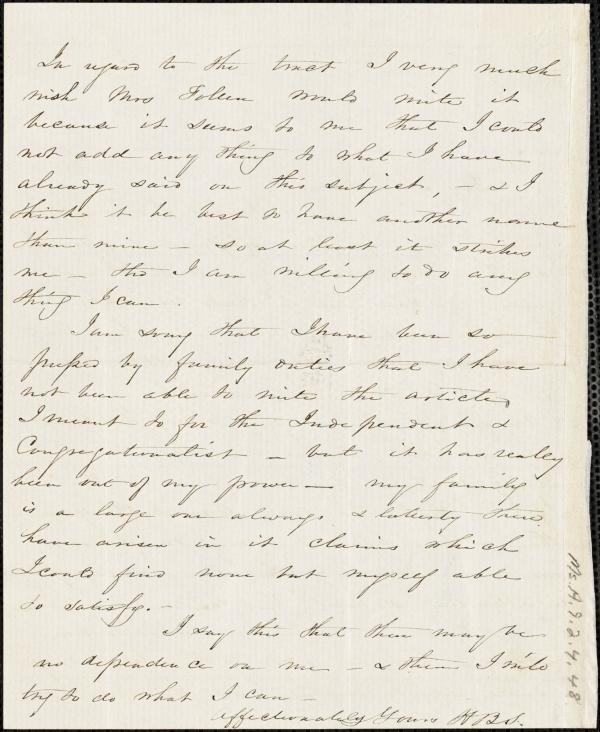 In regard to the tract I very much
wish Mrs Follen would write it
because it seems to me that I could
not add any thing to what I have
already said on this subject, – & I
think it be best to have another name
than mine – so at least it strikes
me – tho I am willing to do any
thing I can.
I am sorry that I have been so
pressed by family duties that I have
not been able to write the articles
I meant to for the Independent &
Congregationalist – but it has really
been out of my power – my family
is a large one always & latterly there
have arisen in it claims which
I could find none but myself able
to satisfy. –
I say this that there may be
no dependence on me – & then I will
try to do what I can –
Affectionately Yours HBS.
Ms.A.9.2.4.48